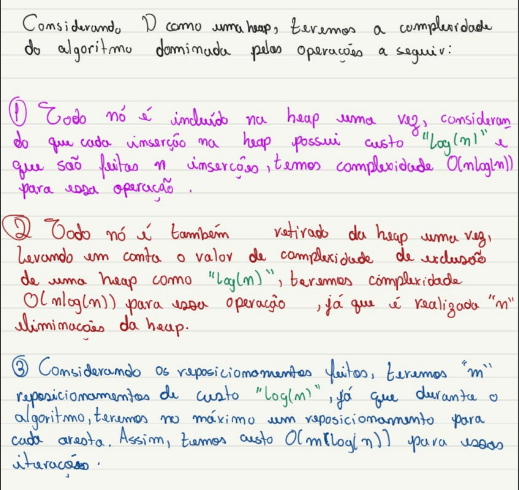 Considerando D como uma heap, teremos a complexidade
do algoritmo dominada pelas operações a seguir:
① Todo nó é incluído na heap uma vez, consideran
do que cada inserção na heap possui custo "log(n)" e
que são feitas n inserções, temos complexidade O(nlog(n))
para essa operação.
② Todo nó é também retirado da heap uma vez,
Levando em conta o valor de complexidade de exclusão
de uma heap como "log(n)", teremos complexidade
O(nlog(n)) para essa operação, já que é realizada "n"
eliminações da heap.
③ Considerando os reposicionamentos feitos, teremos "m"
reposicionamentos de custo "log(n)", já que durante o
algoritmo, teremos no máximo um reposicionamento para
cada aresta. Assim, temos custo O(m(log(n)) para essas
iterações.